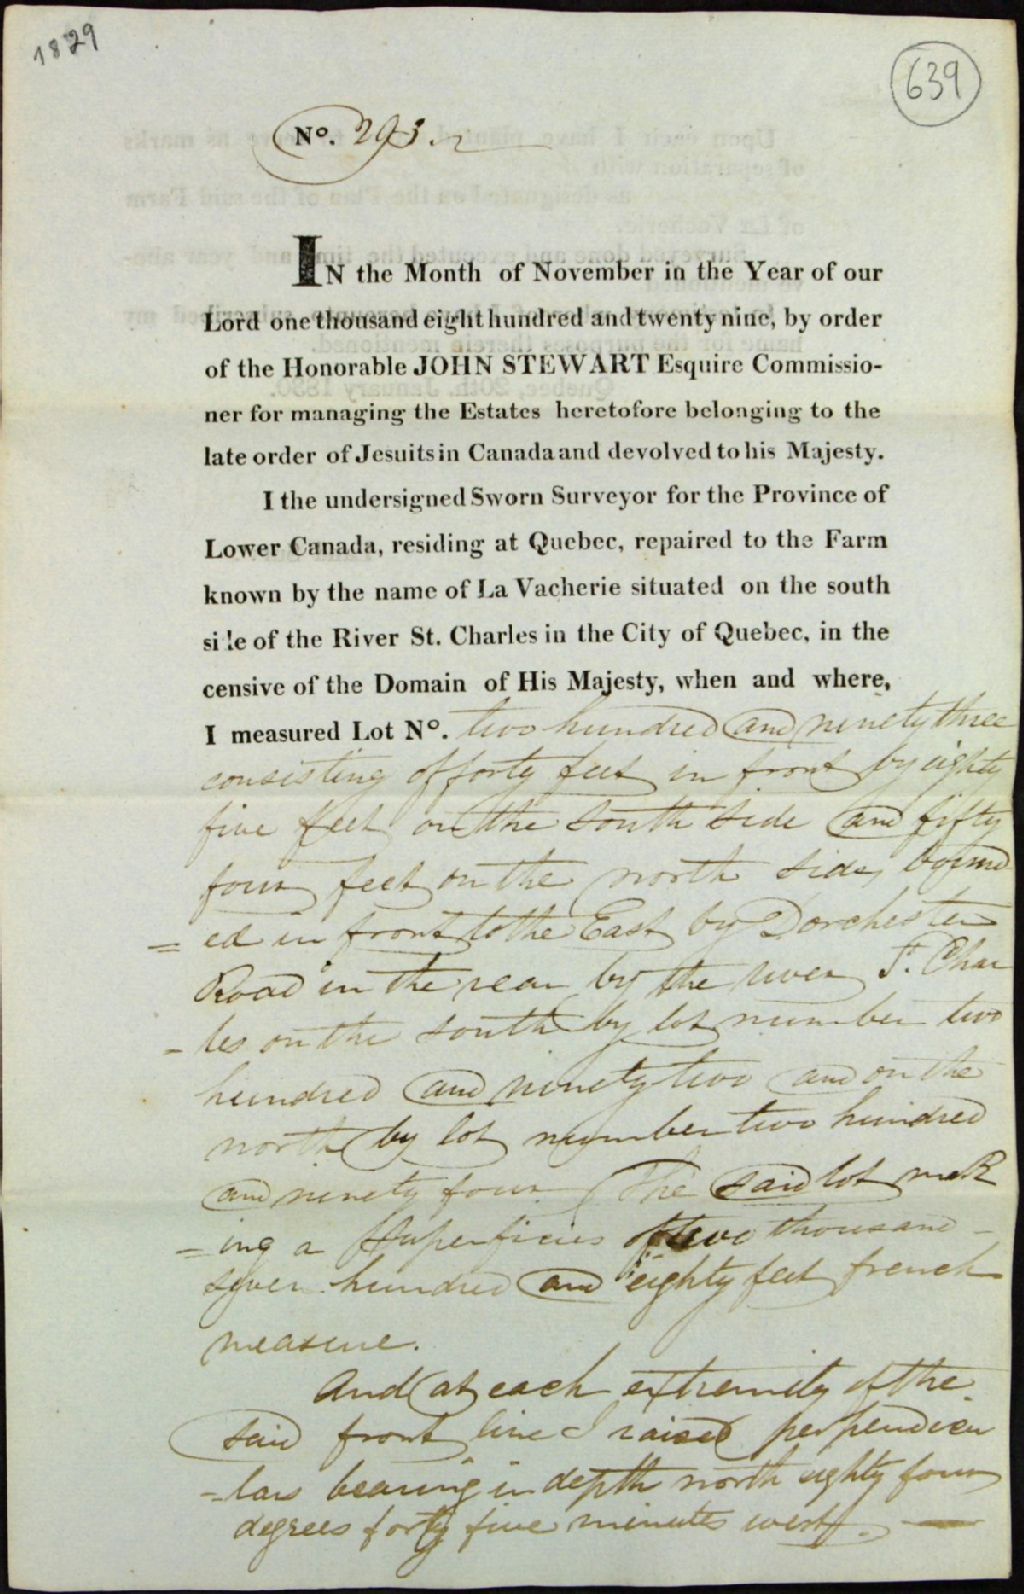 1829
639
No. 293.
IN the Month of November in the Year of our
Lord one thousand eight hundred and twenty nine, by order
of the Honorable JOHN STEWART Esquire Commissio-
ner for managing the Estates heretofore belonging to the
late order of Jesuits in Canada and devolved to his Majesty.
I the undersigned Sworn Surveyor for the Province of
Lower Canada, residing at Quebec, repaired to the Farm
known by the name of La Vacherie situated on the south
side of the River St. Charles in the City of Quebec, in the
censive of the Domain of His Majesty, when and where,
I measured Lot No. two hundred and ninety three
consisting of forty feet in front by eighty
five feet on the south side and fifty
four feet on the north side, bound
= ed in front to the East by Dorchester
Road in the rear by the river St. Char
= les on the south by lot number two
hundred and ninety two and on the
north by lot number two hundred
and ninety four. The said lot mak
= ing a superficies of two thousand
seven hundred and eighty feet french
measure.
And at each extremity of the
said front line I raised perpendicu
= lars bearing in depth north eighty four
degrees forty five minutes west.